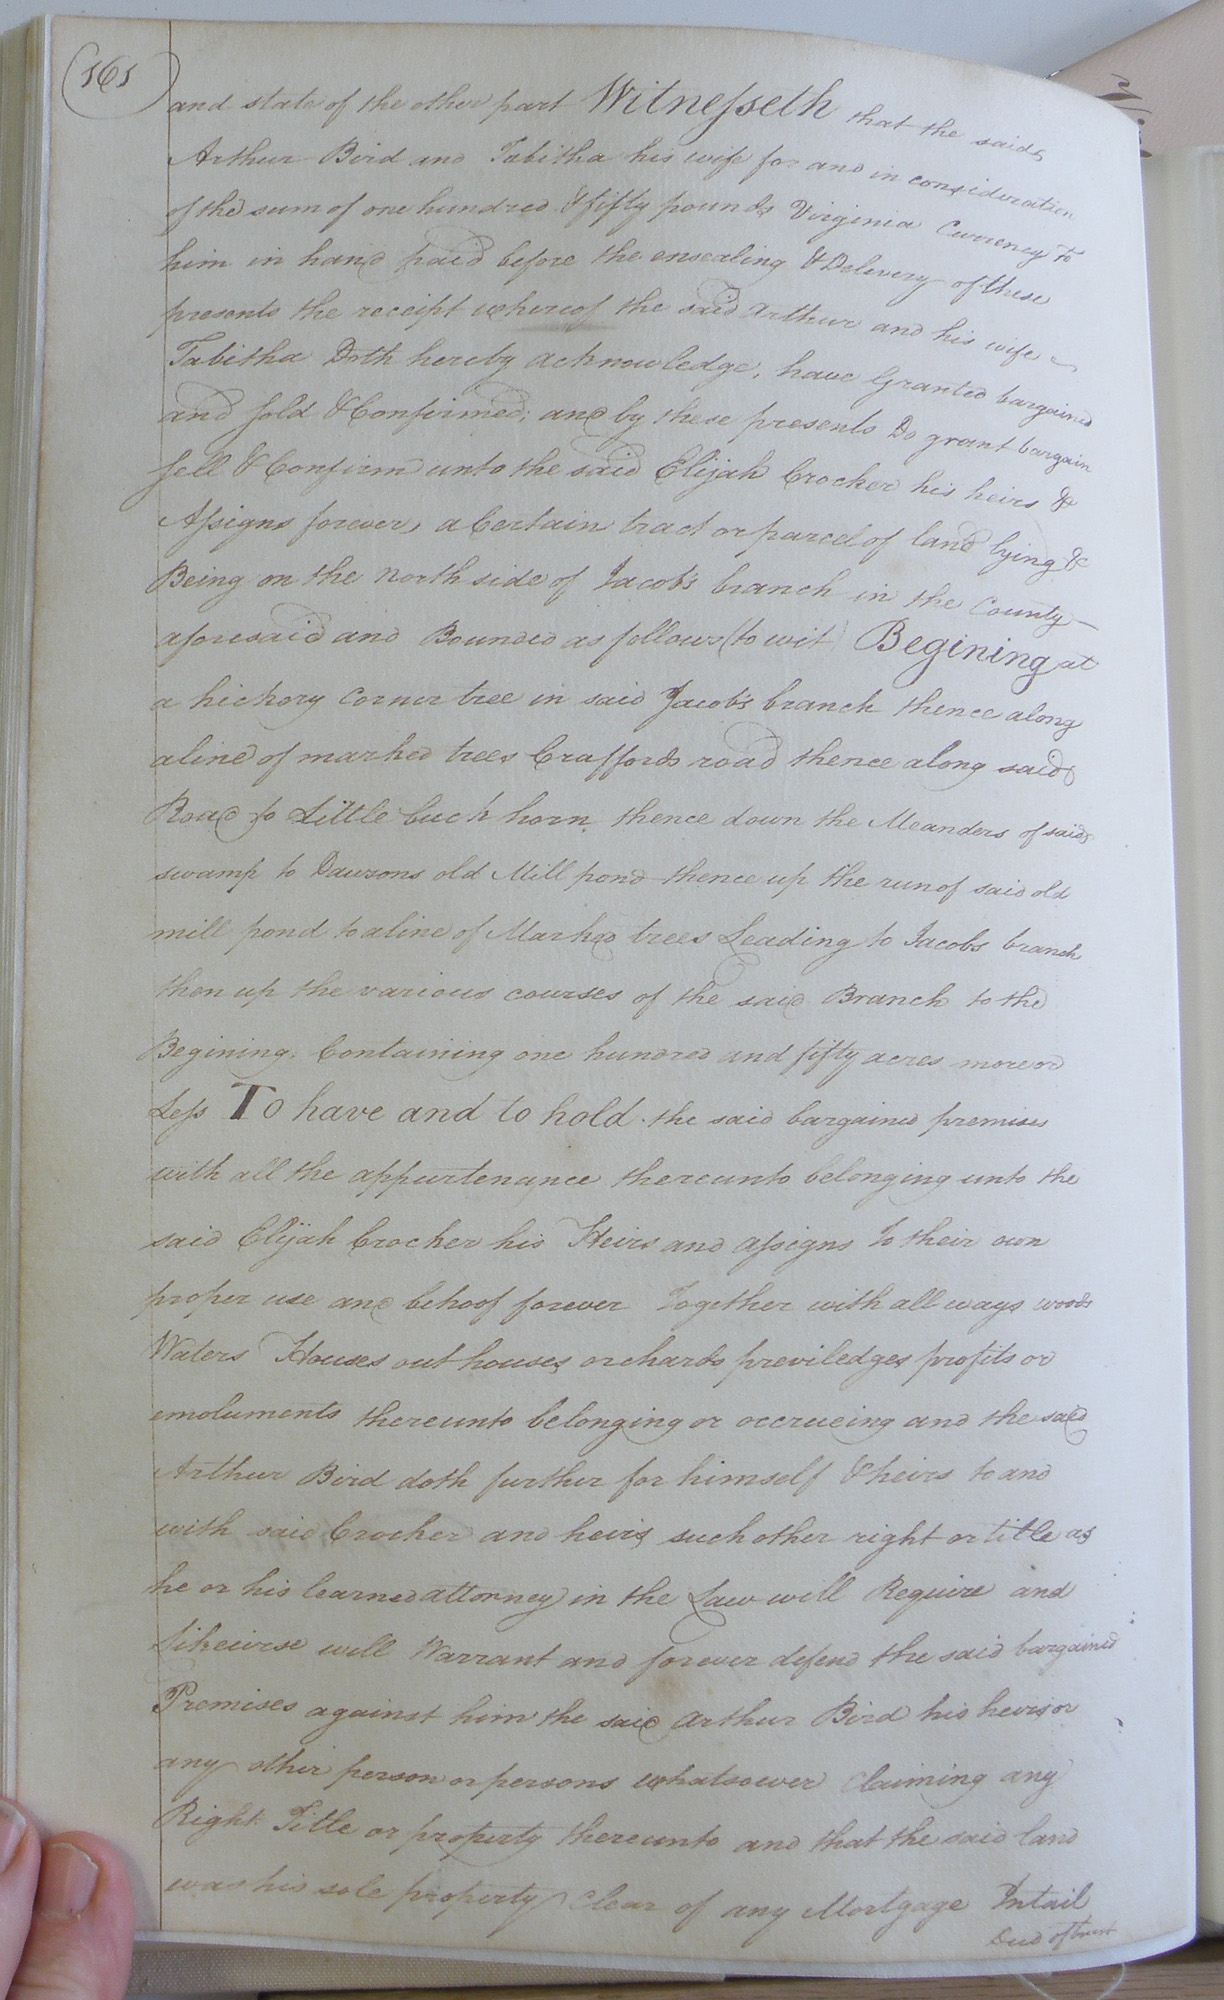 161
and state of the other part Witnesseth that the said
Arthur Bird and Tabitha his wife for and in consideration
of the sum of one hundred & fifty pounds Virginia Currency to
him in hand paid before the ensealing & Delivery of these
presents the receipt whereof the said Arthur and his wife
Tabitha Doth hereby acknowledge, have Granted bargained
and sold & Confirmed; and by these presents Do grant bargain
sell & Confirm unto the said Elijah Crocker his heirs &
Assigns forever, a Certain tract or parcel of land lying &
Being on the north side of Jacob's branch in the County
aforesaid and Bounded as follows (to wit) Begining at
a hickory corner tree in said Jacob's branch thence along
a line of marked trees Craffords road thence along said
Road to Little buck horn thence down the Meanders of said
swamp to Dawsons old Mill pond thence up the run of said old
mill pond to a line of Marked trees Leading to Jacobs branch
then up the various courses of the said Branch to the
Begining. Containing one hundred and fifty acres more or
Less To have and to hold the said bargained premises
with all the appurtenance thereunto belonging unto the
said Elijah Crocker his Heirs and assigns to their own
proper use and behoof forever Together with all ways woods
Waters Houses out houses orchards previledges profits or
emoluments thereunto belonging or accrueing and the said
Arthur Bird doth further for himself & heirs to and
with said Crocker and heirs such other right or title as
he or his learned attorney in the Law will Require and
Likewise will Warrant and forever defend the said bargained
Premises against him the said Arthur Bird his heirs or
any other person or persons whatsoever Claiming any
Right Title or property thereunto and that the said land
was his sole property Clear of any Mortgage Intail
Deed of trust